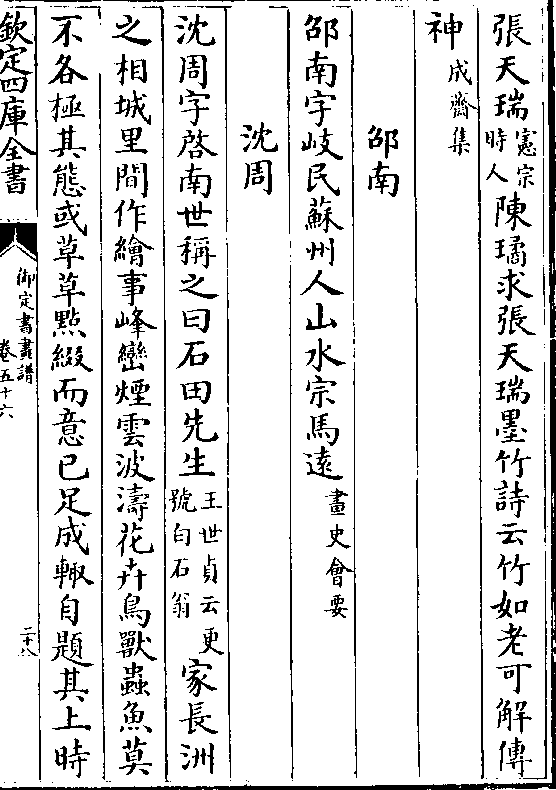 張天瑞憲宗時人陳璚求張天瑞墨竹詩云竹如老可解傳
神成齋集
邵南
邵南字岐民蘇州人山水宗馬遠畫史會要
沈周
沈周字啓南世稱之曰石田先生王世貞云更號白石翁家長洲
之相城里間作繪事峰巒煙雲波濤花卉鳥獸蟲魚莫
不各極其態或草草點綴而意已足成輙自題其上時
欽定四庫全書
御定書畫譜
卷五十六
二十八